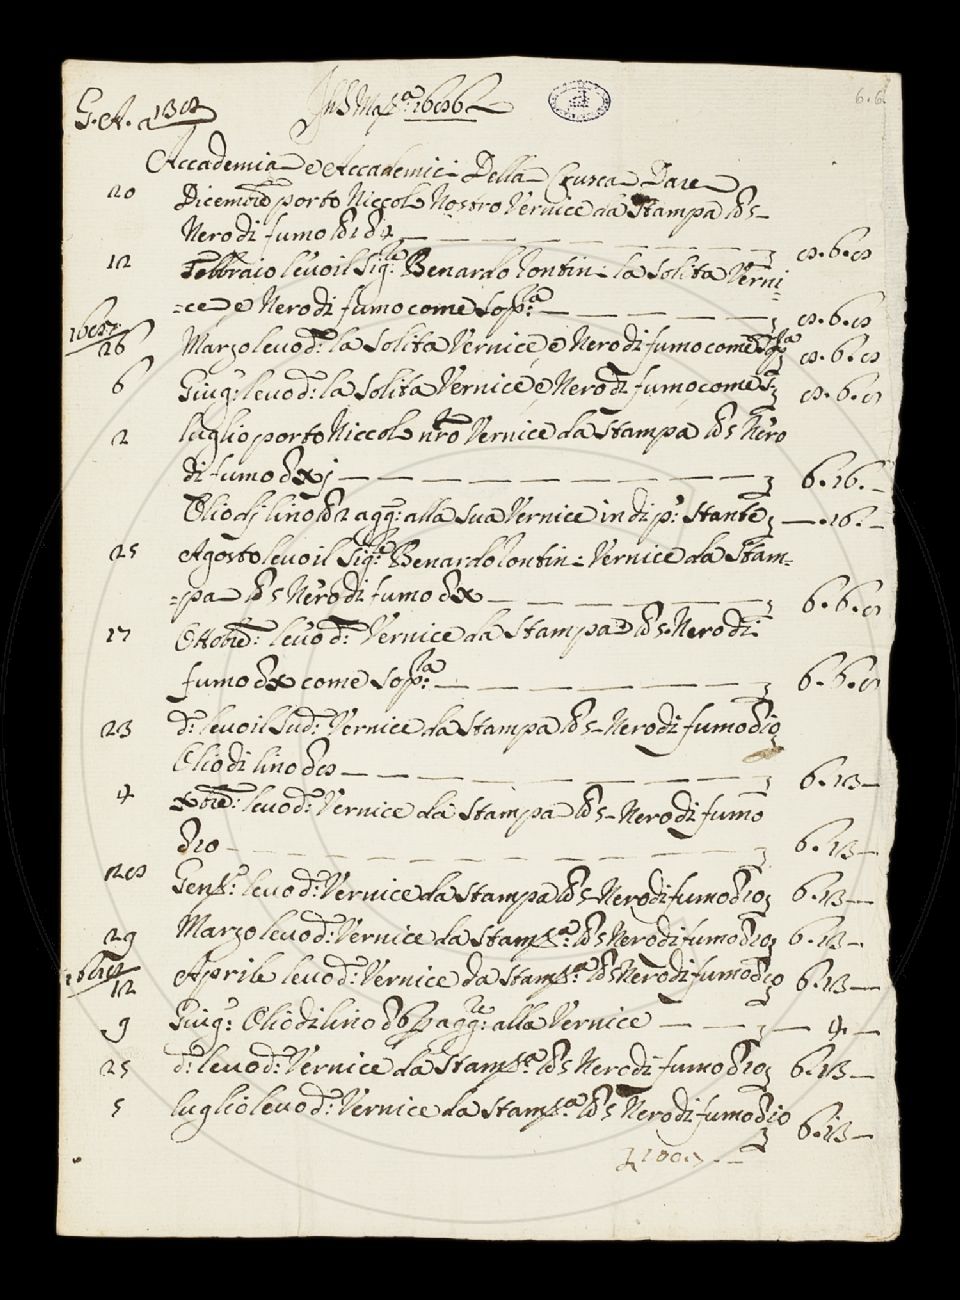 G. A. 138
Accademia e Accademici Della Crusca Dare
20 Dicembre porto Niccolo Nostro Vernice da Stampa lb 5
Nero di fumo 8.6.8
12 Febbraio levo il Sigre Benardo Lontin: la Solita Verni
=ce e Nero di fumo come Sopra 8.6.8
26 Marzo levo do: la Solita Vernice e Nero di fumo come Sopra 8.6.8
6 Giugo: levo do: la Solita Vernice e Nero di fumo come S 8.6.8
2 luglio porto Niccolo nro Vernice da Stampa lb 5 Nero
di fumo 6.16.–
Olio di lino agge: alla sua Vernice 16.–
25 Agosto levo il Sigre Benardo Lontin: Vernice da Stam-
=pa lb 5 Nero di fumo 6.6.8
17 Ottobre: levo do: Vernice da Stampa lb 5 Nero di
fumo come Sopra 6.6.8
23 do: levo il Sudo: Vernice da Stampa lb 5 – Nero di fumo 10
Olio di lino 6.13–
4 Xbre: levo do: Vernice da Stampa lb 5 – Nero di fumo
10 – 6.13–
128 Geno: levo do: Vernice da Stampa lb 5 – Nero di fumo 10 6.13–
29 Marzo levo do: Vernice da Stampa lb 5 Nero di fumo 10 6.13–
12 Aprile levo do: Vernice da Stampa lb 5 Nero di fumo 10 6.13–
9 Giugo: Olio di lino agge: alla Vernice – 4.–
25 do: levo do: Vernice da Stampa lb 5 Nero di fumo 10 6.13–
5 luglio levo do: Vernice da Stampa lb 5 Nero di fumo 10
6.13–